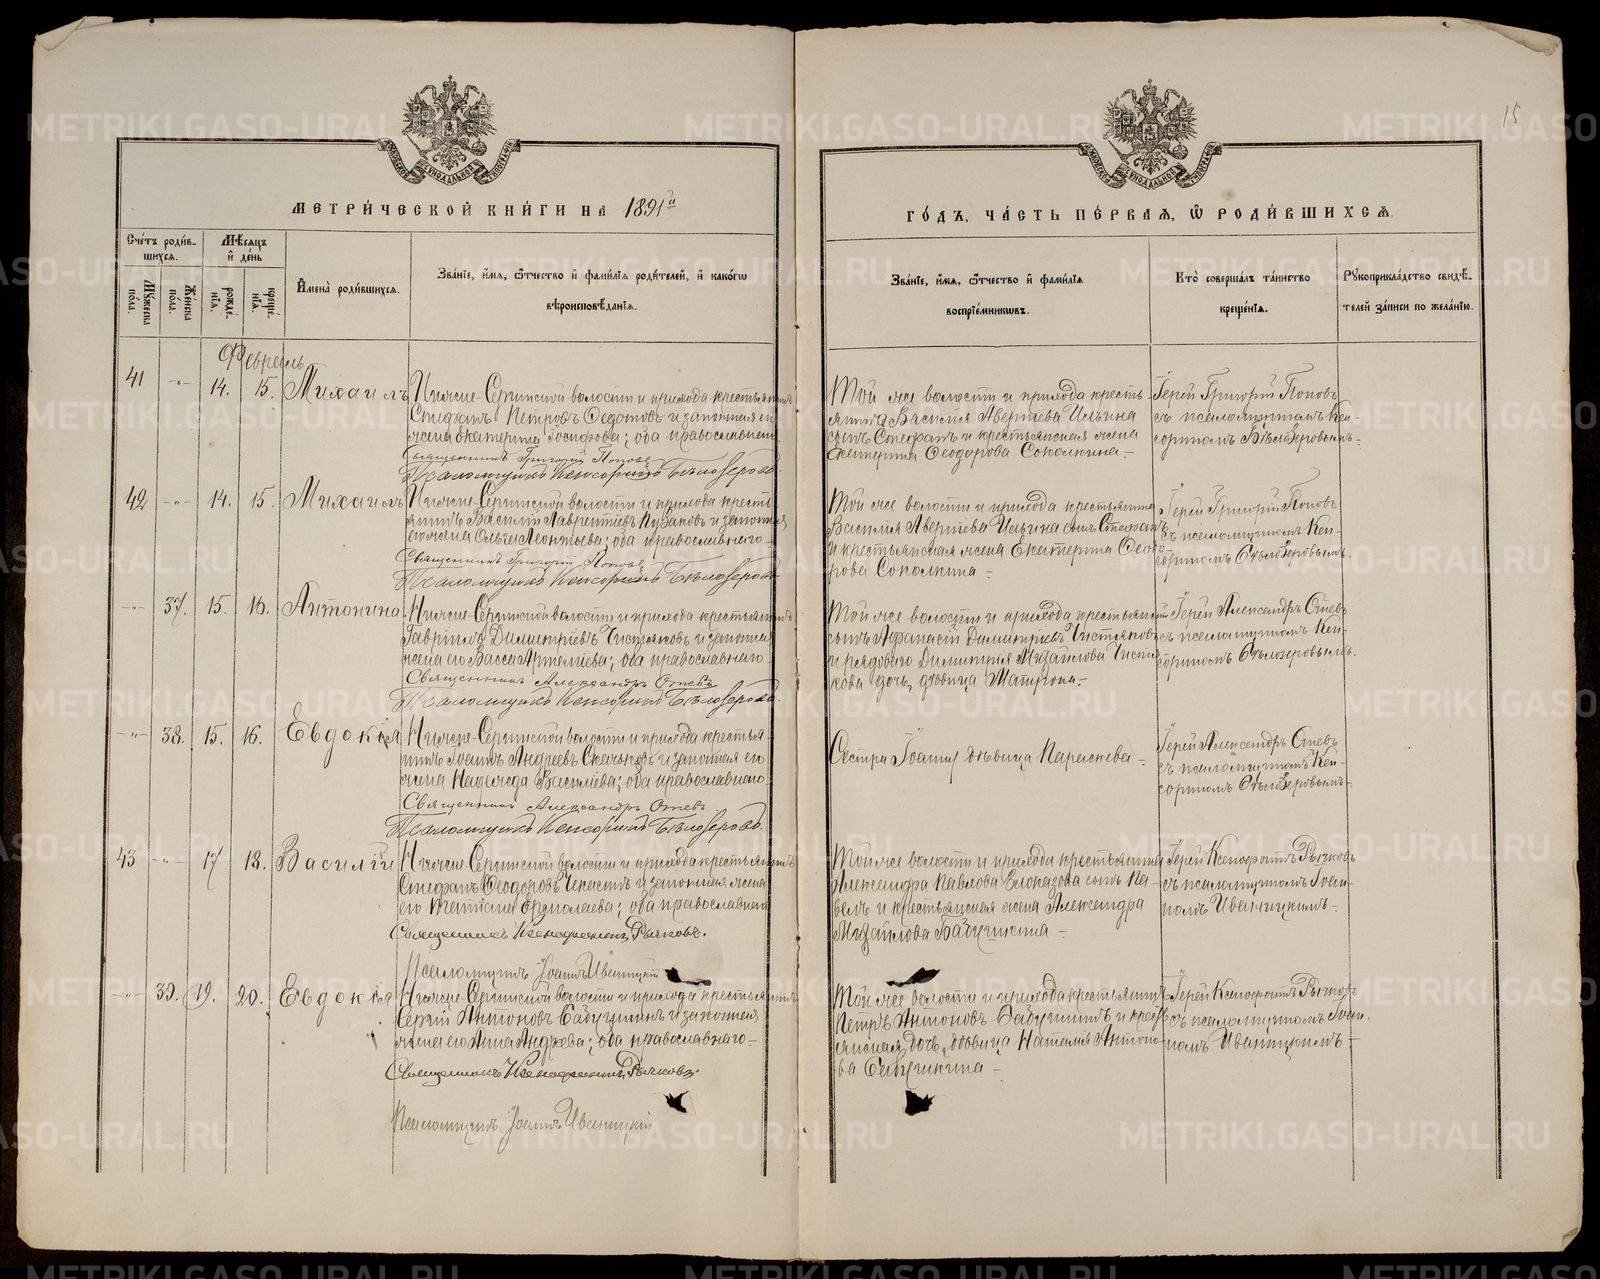 15
МЕТРИ́ЧЕСКОЙ КНИ́ГИ НА 1891й
ГО́ДЪ, ЧА́СТЬ ПЕ́РВАЯ, Ѡ҆ РОДИ́ВШИХСѦ.
Сче́тъ роди́в-
шихся.
Мꙋ́жеска по́ла.
Же́нска по́ла.
Мѣ́сяцъ и҆ де́нь
рожде́-
нїѧ.
креще́-
нїѧ.
И҆мена̀ роди́вшихся.
Зва́нїе, и҆́мѧ, ѻ҆́тчество и҆ фами́лїѧ роди́телей, и҆ како́гѡ
вѣроисповѣ́данїѧ.
Зва́нїе, и҆́мѧ, ѻ҆́тчество и҆ фами́лїѧ
воспрїе́мникѡвъ.
Кто̀ соверша́лъ та́инство
креще́нїѧ.
Рꙋкоприкла́дство свидѣ́-
телей за́писи по жела́нїю.
Февраль
41 -"- 14. 15. Михаилъ
Нижне-Сергинской волости и прихода крестьянинъ
Стефанъ Петровъ Федотовъ и законная его
жена Екатерина; оба православнаго
Священникъ Григорій Поповъ
Псаломщикъ Кенсоринъ Бѣлозеровъ.
Той же волости и прихода кресть
янина Василія Авертіева Ильина
сынъ Стефанъ и крестьянская жена
Екатерина Ѳеодорова Соколкина.-
Іерей Григорій Поповъ
съ псаломщикомъ Кен-
сориномъ Бѣлозеровымъ.
42 -"- 14. 15. Михаилъ
Нижне-Сергинской волости и прихода кресть
янинъ Василій Лаврентіевъ и законная
его жена Ольга Леонтьева; оба православнаго-
Священникъ Григорій Поповъ
Псаломщикъ Кенсоринъ Бѣлозеровъ
Той же волости и прихода крестьянина
Василія Авертіева Ильина сынъ Стефанъ
и крестьянская жена Екатерина Ѳеодо-
рова Соколкина -
Іерей Григорій Поповъ
съ псаломщикомъ Кен-
сориномъ Бѣлозеровымъ.
-"- 37. 15. 16. Антонина.
Нижне-Сергинской волости и прихода крестьянинъ
Гавріилъ Димитріевъ Чистяковъ и законная
жена его Васса Артеміева; оба православнаго
Священникъ Александръ
Псаломщикъ Кенсоринъ Бѣлозеровъ.
Той же волости и прихода крестьянинъ
Аѳанасій Димитріевъ Чистяковъ
и рядового Димитрія Михайлова Чистя
кова дочь, дѣвица Матрона.-
Іерей Александръ
съ псаломщикомъ Кен-
сориномъ Бѣлозеровымъ.
-"- 38. 15. 16. Евдокія
Нижне-Сергинской волости и прихода крестья-
нинъ Іоаннъ Андреевъ и законная его
жена Надежда Василіева; оба православнаго
Священникъ Александръ
Псаломщикъ Кенсоринъ Бѣлозеровъ.
Сестра Іоанна дѣвица Параскева-.
Іерей Александръ
съ псаломщикомъ Кен-
сориномъ Бѣлозеровымъ-
43 -"- 17 18. Василій
Нижне-Сергинской волости и прихода крестьянинъ
Стефанъ Ѳеодоровъ и законная жена
его Татіана Ермолаева; оба православнаго
Священникъ Ксенофонтъ Рычковъ.
Псаломщикъ Іоаннъ Иваницкій
Той же волости и прихода крестьянина
Александра Павлова сынъ Па-
велъ и крестьянская жена Александра
Михайлова Бабушкина -
Іерей Ксенофонтъ Рычковъ
съ псаломщикомъ Іоан-
номъ Иваницкимъ-
-"- 39. 19. 20. Евдокія
Нижне-Сергинской волости и прихода крестьянинъ
Сергій Антоновъ Бабушкинъ и законная
жена его Анна Андреева; оба православнаго-
Священникъ Ксенофонтъ Рычковъ.
Псаломщикъ Іоаннъ Иваницкій
Той же волости и прихода крестьянинъ
Петръ Антоновъ Бабушкинъ и кресть
янская дочь, дѣвица Наталія Антоно-
ва Бабушкина -
Іерей Ксенофонтъ Рычковъ
съ псаломщикомъ Іоан.
номъ Иваницкимъ-
METRIKI.GASO-URAL.RU